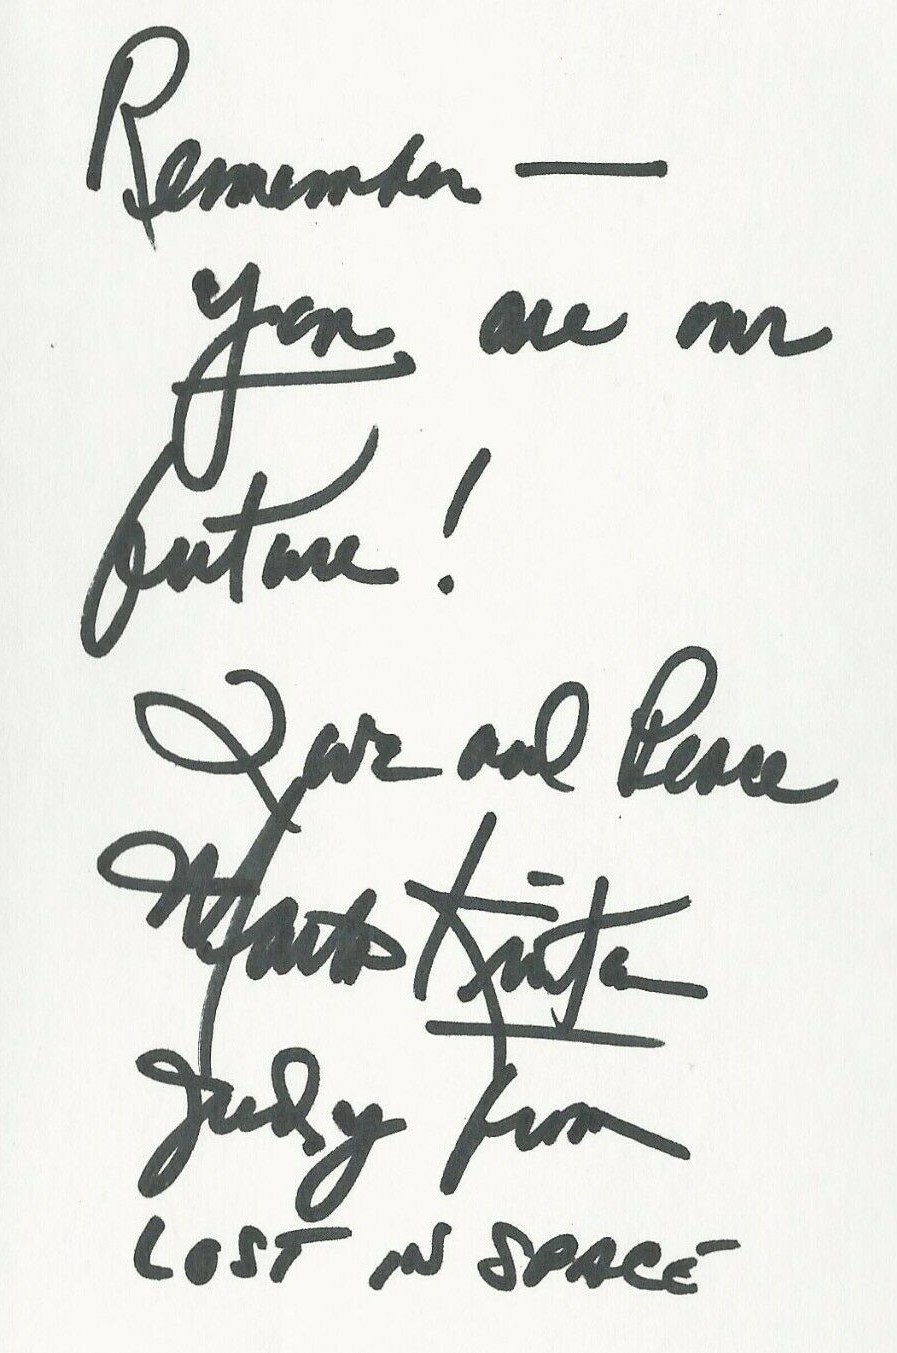 Remember —
you are our
future!
Love and Peace
Marta Kristen
Judy from
LOST IN SPACE